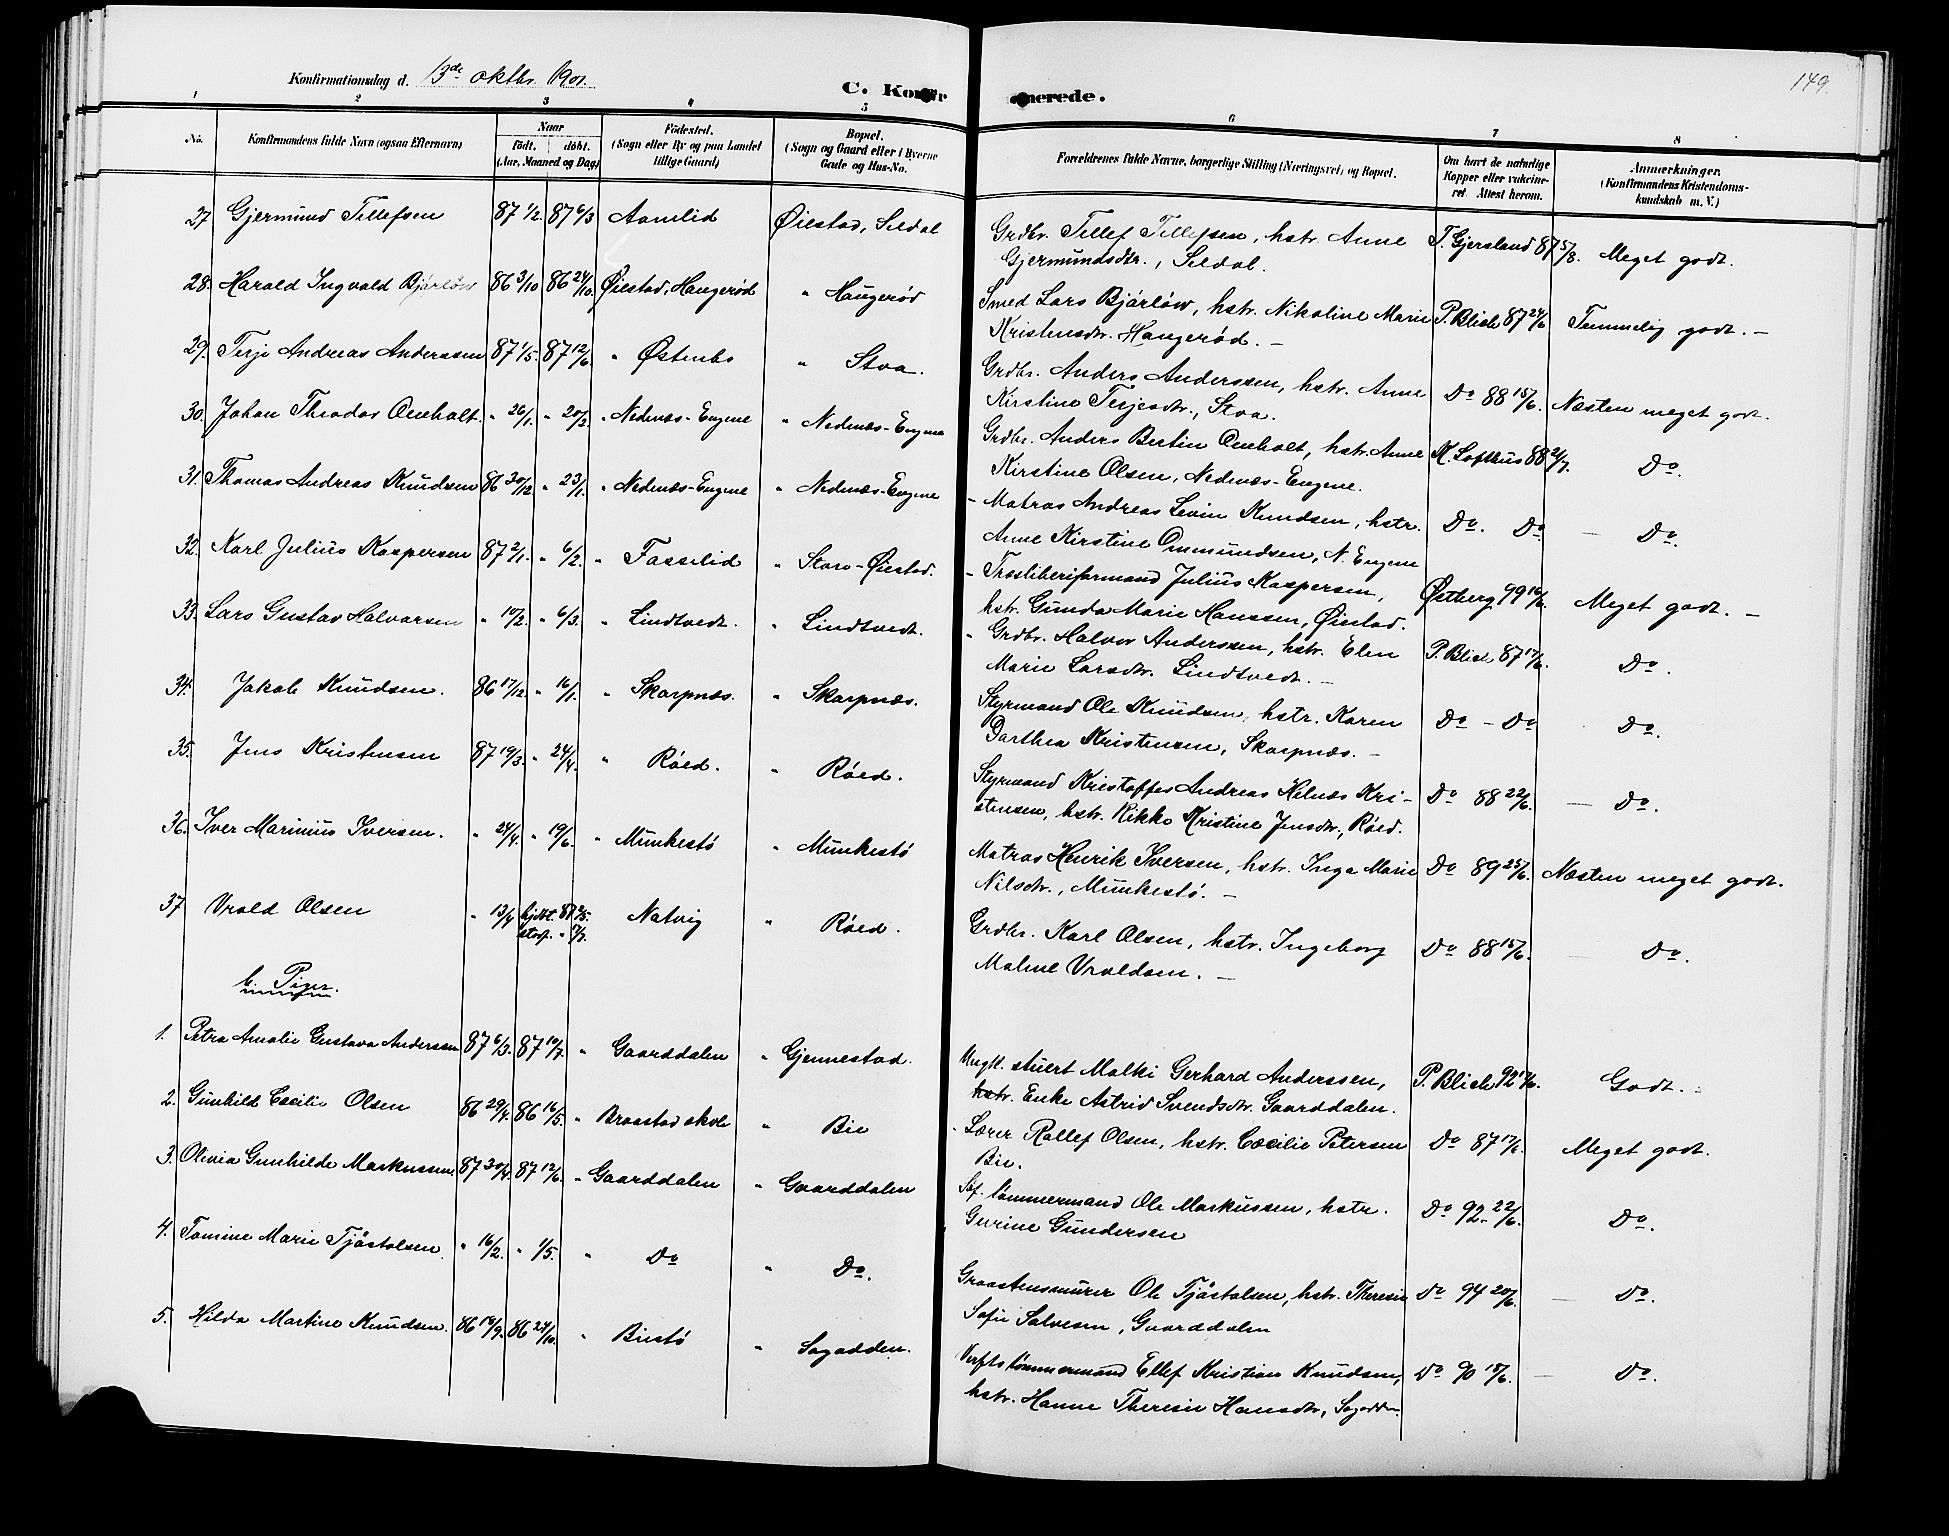 Konfirmationsdag d. 13de oktbr. 1901.
C. Konfirmerede.
149.
1 2 3 4 5 6 7 8
No. Konfirmandens fulde Navn (ogsaa Efternavn)
Naar
födt. döbt.
(Aar, Maaned og Dag)
Födested.
(Sogn eller By og paa Landet
tillige Gaard)
Bopæl.
(Sogn og Gaard eller i Byerne
Gade og Hus-No.
Forældrenes fulde Navne, borgerlige Stilling (Næringsvei) og Bopæl.
Om havt de naturlige
Kopper eller vakcine-
ret. Attest herom.
Anmærkninger.
(Konfirmandens Kristendoms-
kundskab m. V.)
27 Gjermund Tellefsen 87 1/2. 87 6/3 Aamlid Øiestad, Seldal Grdbr. Tellef Tellefsen, hstr. Anne T. Gjersland 87 5/8. Meget godt.
Gjermundsdtr., Seldal.
28. Harald Ingvald Bjårlöw 86 3/10 86 24/10. Øiestad, Haugeröd " Haugeröd Smed Lars Bjårlöw, hstr. Nikoline Marie P. Blich 87 24/6 Temmelig godt. —
Kristensdtr. Haugeröd. —
29. Terje Andreas Anderssen 87 1/5. 87 12/6. " Østenbo " Stva. Grdbr. Anders Anderssen, hstr. Anne Do 88 15/6. Næsten meget godt.
Kirstine Terjesdtr., Stva.
30. Johan Theodor Omholt. " 26/1. " 20/2. " Nedenæs-Engene " Nedenæs-Engene Grdbr. Anders Bertin Omholt, hstr. Anne M. Lofthus 88 2/7. Do.
Kirstine Olsen, Nedenæs-Engene.
31. Thomas Andreas Knudsen 86 30/12 " 23/1. " Nedenæs-Engene " Nedenæs-Engene Matros Andreas Levin Knudsen, hstr. Do. Do — Do.
Anne Kirstine Ommundsen, N. Engene
32. Karl Julius Kaspersen 87 2/1. " 6/2. " Fasselid " Store-Øiestad. Træsliberiformand Julius Kaspersen, Østberg 99 19/6. Meget godt. —
hstr. Gunda Marie Hanssen, Øiestad.
33. Lars Gustav Halvorsen " 17/2. " 6/3. " Lindtvedt. " Lindtvedt. " Grdbr. Halvor Anderssen, hstr. Elen P. Blich 87 17/6. Do.
Marie Larsdtr. Lindtvedt. —
34. Jakob Knudsen. 86 17/12. " 16/1. " Skarpnæs. " Skarpnæs. Styrmand Ole Knudsen, hstr. Karen Do - Do Do.
Dorthea Kristensen, Skarpnæs. —
35. Jens Kristensen 87 19/3. " 24/4. " Röed. " Röed. Styrmand Kristoffer Andreas Helnæs Kri- Do 88 22/6. — Do.
stensen, hstr. Rikke Kristine Jensdtr., Röed.
36. Iver Marinius Iversen. " 24/4. " 19/6. " Munkestö " Munkestö Matros Henrik Iversen, hstr. Inga Marie Do 89 25/6. Næsten meget godt.
Nilsdtr., Munkestö. —
37 Vrold Olsen " 13/4 hjdöbt. 87 2/5. Natvig " Röed. Grdbr. Karl Olsen, hstr. Ingeborg Do 88 15/6. — Do.
stadf. " 3/7. Maline Vroldsen. —
b. Piger.
1. Petra Amalie Gustava Anderssen 87 6/3. 87 10/7. " Gaarddalen " Gjennestad. stuert Malki Gerhard Anderssen, P. Blich 92 17/6. Godt.
hstr. Enke Astrid Svendsdtr. Gaarddalen.
2. Gunhild Cecilie Olsen 86 29/4. 86 16/5. " Braastad skole " Bie Lærer Rollef Olsen, hstr. Cæcilie Petersen Do 87 17/6. Meget godt.
Bie.
3. Olivia Gunhilde Markussen 87 30/4. 87 12/6. " Gaarddalen " Gaarddalen Sk. tömmermand Ole Markussen, hstr. Do 92. 22/6. Do.
Gurine Gundersen
4. Tomine Marie Tjöstolsen. " 16/2. " 1/5. " Do " Do. Graastensmurer Ole Tjöstolsen, hstr. Theresie Do 94 20/6. — Do.
Sofie Salvesen, Gaarddalen
5. Hilda Martine Knudsen. 86 19/9. 86 24/10. " Biestö " Sagodden. Verftstömmermand Ellef Kristian Knudsen, Do 90 18/6. — Do.
hstr. Hanne Theresie Hansdtr, Sagodden